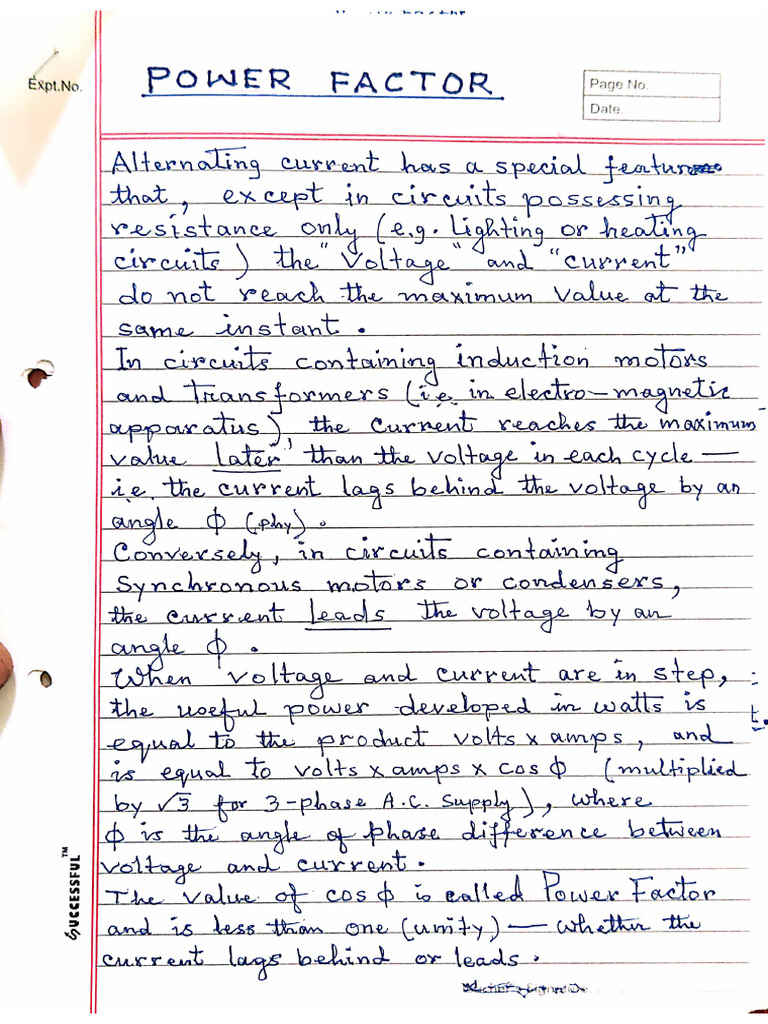 POWER FACTOR
Expt.No.
Page No.
Date.
Alternating current has a special feature
that, except in circuits possessing
resistance only (e.g. lighting or heating
circuits) the "Voltage" and "current"
do not reach the maximum value at the
same instant.
In circuits containing induction motors
and Transformers (i.e. in electro-magnetic
apparatus), the current reaches the maximum
value later than the voltage in each cycle —
i.e. the current lags behind the voltage by an
angle ϕ (phy).
Conversely, in circuits containing
Synchronous motors or condensers,
the current leads the voltage by an
angle ϕ.
When voltage and current are in step,
the useful power developed in watts is
equal to the product volts x amps, and
is equal to volts x amps x cos ϕ (multiplied
by √3 for 3-phase A.C. supply), where
ϕ is the angle of phase difference between
voltage and current.
The value of cos ϕ is called Power Factor
and is less than one (unity) — whether the
current lags behind or leads.
SUCCESSFUL™